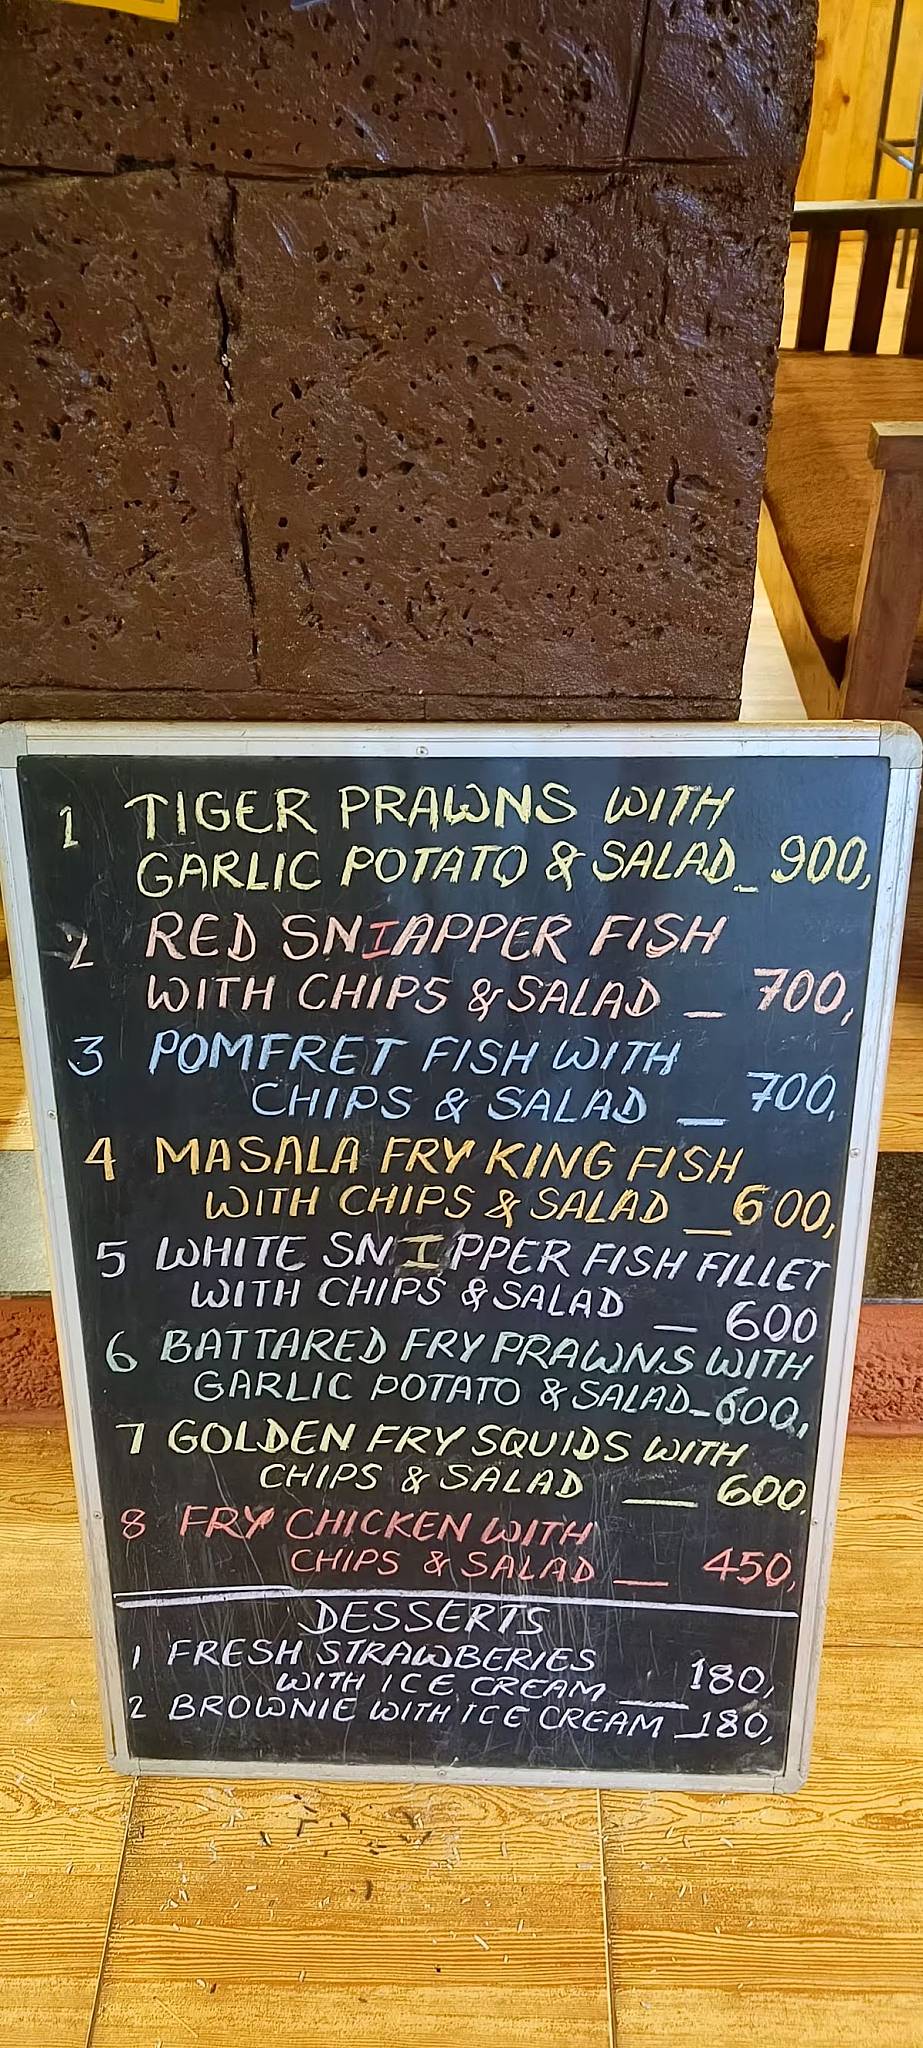 1 TIGER PRAWNS WITH
GARLIC POTATO & SALAD_ 900,
2 RED SNIAPPER FISH
WITH CHIPS & SALAD _ 700,
3 POMFRET FISH WITH
CHIPS & SALAD _ 700,
4 MASALA FRY KING FISH
WITH CHIPS & SALAD _600,
5 WHITE SNIPPER FISH FILLET
WITH CHIPS & SALAD _ 600
6 BATTARED FRY PRAWNS WITH
GARLIC POTATO & SALAD_600,
7 GOLDEN FRY SQUIDS WITH
CHIPS & SALAD _ 600,
8 FRY CHICKEN WITH
CHIPS & SALAD _ 450,
DESSERTS
1 FRESH STRAWBERIES
WITH ICE CREAM _180,
2 BROWNIE WITH ICE CREAM _180,